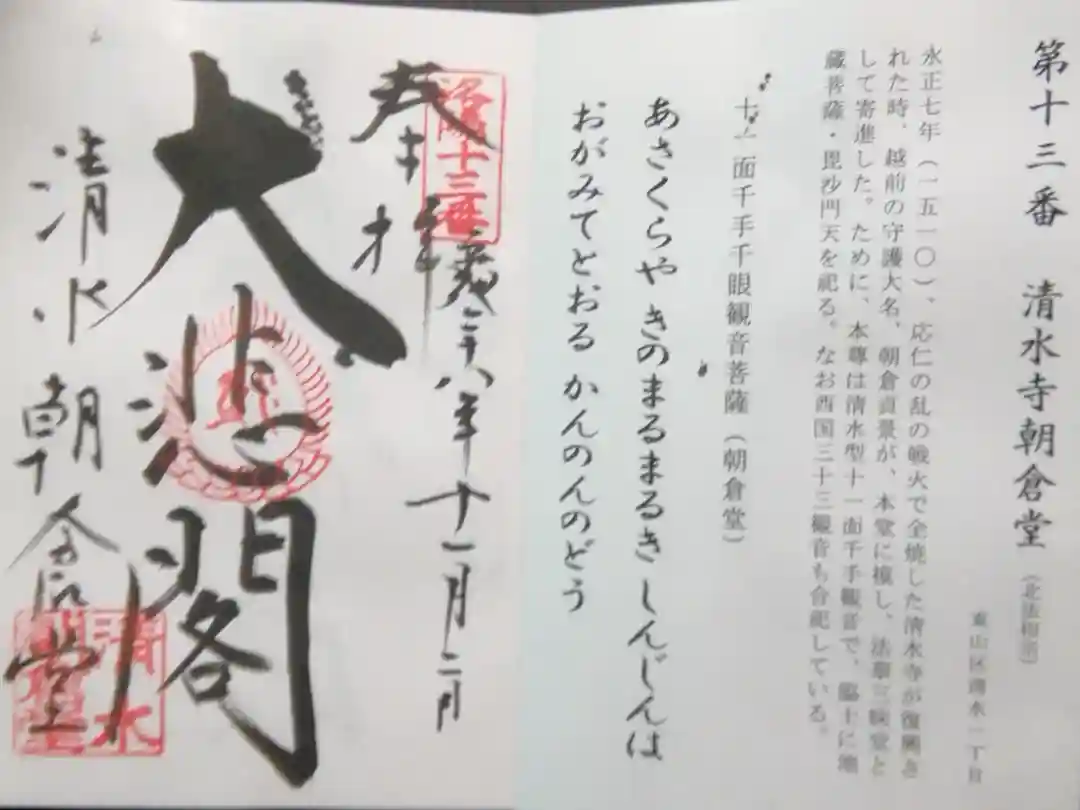 第十三番 清水寺朝倉堂（北法相宗）
東山区清水一丁目
永正七年（一五一〇）、応仁の乱の戦火で全焼した清水寺が復興さ
れた時、越前の守護大名、朝倉貞景が、本堂に模し、法華三昧堂と
して寄進した。ために、本尊は清水型十一面千手観音で、脇士に地
蔵菩薩・毘沙門天を祀る。なお西国三十三観音も合祀している。
十一面千手千眼観音菩薩（朝倉堂）
あさくらや きのまるまるき しんじんは
おがみてとおる かんのんのどう
洛陽十三番
奉拝
二十八年十一月二日
大悲閣
清水朝倉堂
清水